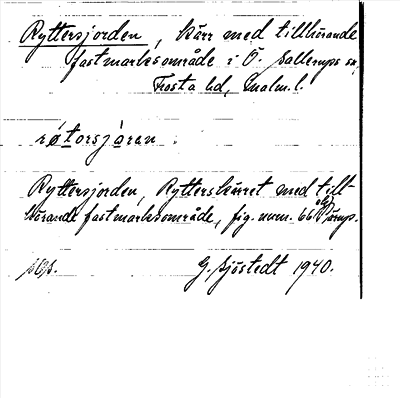 Ryttersjorden, kärr med tillhörande
fastmarksområde i Ö. Sallerups sn,
Frosta hd, Malm. l.
røtorsjoren.
Ryttersjorden, Rytterskärret med till-
hörande fastmarksområde, fig. num. 66
G. Sjöstedt 1940.